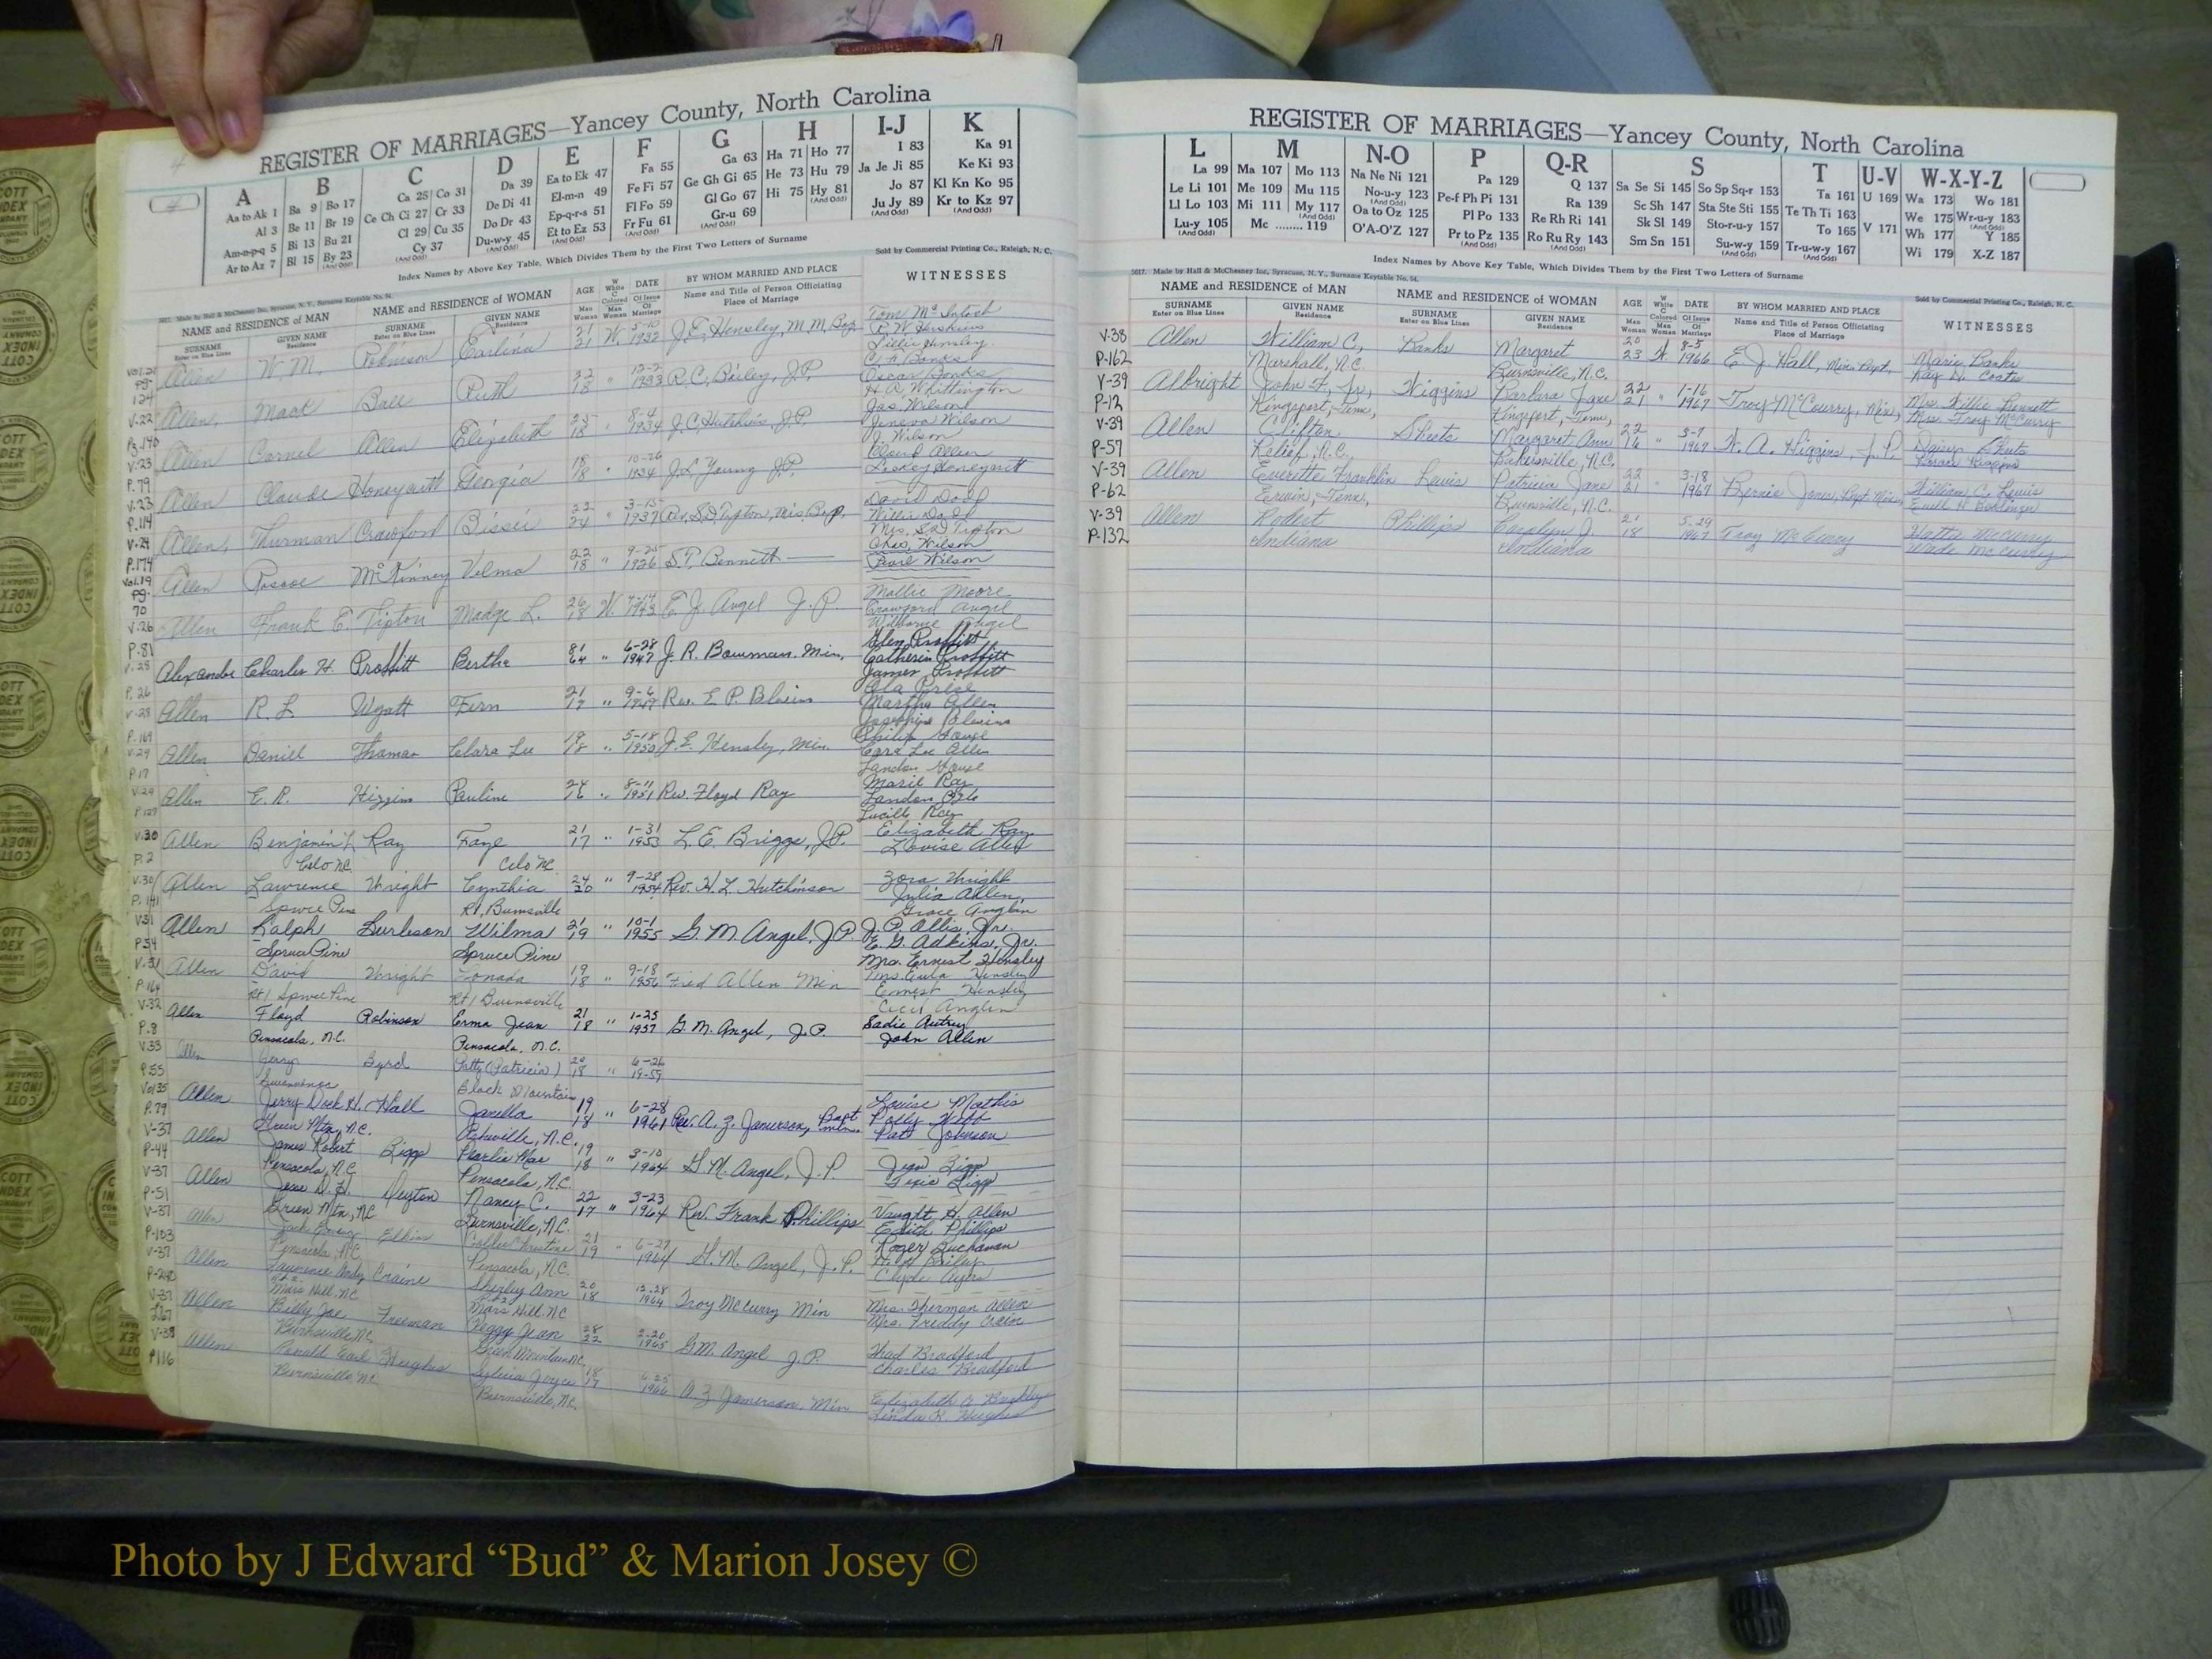 REGISTER OF MARRIAGES—Yancey County, North Carolina
A B C D E F G H I-J K
Aa to Ak 1 Ba 9 Bo 17 Ca 25 Co 31 Da 39 Ea to Ek 47 Fa 55 Ga 63 Ha 71 Ho 77 I 83 Ka 91
Al 3 Be 11 Br 19 Ce Ch Ci 27 Cr 33 De Di 41 El-m-n 49 Fe Fi 57 Ge Gh Gi 65 He 73 Hu 79 Ja Je Ji 85 Ke Ki 93
Am-n-p-q 5 Bi 13 Bu 21 Cl 29 Cu 35 Do Dr 43 Ep-q-r-s 51 Fl Fo 59 Gl Go 67 Hi 75 Hy 81 Jo 87 Kl Kn Ko 95
Ar to Az 7 Bl 15 By 23 Cy 37 Du-w-y 45 Et to Ez 53 Fr Fu 61 Gr-u 69 (And Odd) Ju Jy 89 Kr to Kz 97
Index Names by Above Key Table, Which Divides Them by the First Two Letters of Surname
Sold by Commercial Printing Co., Raleigh, N. C.
NAME and RESIDENCE OF MAN NAME and RESIDENCE OF WOMAN AGE DATE BY WHOM MARRIED AND PLACE WITNESSES
SURNAME GIVEN NAME SURNAME GIVEN NAME Name and Title of Person Officiating
Enter on Blue Lines Residence Enter on Blue Lines Residence Place of Marriage
Allen W. M. Robinson Earlina 21 21 W. 5-10 1932 J. E. Hensley, M. M. Bap. Tom McIntosh
Allen, Mack Ball Ruth 18 1933 R. C. Bailey, J.P. Oscar Banks
Allen Cornel Allen Elizabeth 18 8-4 1934 J. C. Hutchins J.P. Jas. Wilson Geneva Wilson
Allen Claude Honeycutt Georgia 18 18 10-26 1934 J. L. Young J.P. Floyd Allen
Allen, Thurman Crawford Bissie 22 24 3-13 1937 Rev. S. D. Tipton, Mis. Bap. David Doap Willie Doap Mrs. S. D. Tipton
Allen Roscoe McKinney Velma 22 18 9-25 1926 S. T. Bennett Chas. Wilson Pearl Wilson
Allen Frank E. Tipton Madge L. 26 18 W. 1943 E. J. Angel J. P. Mollie Moore Crawford Angel Wilborne Angel
Alexander Charles H. Proffitt Bertha 81 64 " 6-28 1947 J. R. Bowman. Min. Glen Proffitt Catherin Proffitt James Proffitt
Allen R. L. Wyatt Fern 21 17 " 9-6 Rev. E. P. Blevins Ola Price Martha Allen Josephine Blevins
Allen Daniel Thomas Clara Lee 19 18 " 5-18 1950 J. E. Hensley, Min. Philip House Cora Lee Allen Landon House
Allen E. R. Higgins Pauline 24 16 " 8-11 1951 Rev. Floyd Ray Marie Ray Lucille Ray
Allen Benjamin L. Ray Faye 21 17 " 1-31 1953 L. E. Briggs, J.P. Elizabeth Ray Louise Allen
Celo NC Celo NC
Allen Lawrence Wright Cynthia 24 20 " 9-28 1954 Rev. H. L. Hutchinson Zora Wright Julia Allen Grace Anglin
Spruce Pine Rt. Burnsville
Allen Ralph Burleson Wilma 21 19 " 10-1 1955 G. M. Angel, J.P. J. P. Allis, Jr. E. G. Adkins, Jr. Mrs. Ernest Hensley
Spruce Pine Spruce Pine
Allen David Wright Zonada 19 18 " 9-18 1956 Fred Allen Min Mrs. Eula Hensley Ernest Hensley Cecil Anglin
Rt 1 Spruce Pine Rt 1 Burnsville
Allen Floyd Robinson Erma Jean 21 18 " 1-25 1957 G. M. Angel, J.P. Sadie Autrey John Allen
Pensacola, N.C. Pensacola, N.C.
Allen Jerry Byrd Patty (Patricia) 20 18 " 6-26 19-59
Swannanoa Black Mountain
Allen Jerry Dock H. Hall Janella 19 18 " 6-28 1961 Rev. A. Z. Jamerson, Bapt. Min. Louise Mathis Polly Webb Pat Johnson
Green Mtn, N.C. Asheville, N.C.
Allen James Robert Biggs Pearlie Mae 19 18 " 3-10 1964 G. M. Angel, J.P.
Pensacola, N.C. Pensacola, N.C.
Allen Jesse D. H. Deyton Nancy C. 22 17 " 3-23 1964 Rev. Frank Phillips Vaught H. Allen Edith Phillips Roger Buchanan
Green Mtn, NC Burnsville, N.C.
Allen Elkins Callie Christine 21 19 " 6-27 1964 G. M. Angel, J.P. Clyde Ayers
Pensacola, NC Pensacola, N.C.
Allen Lawrence Andy Craine Shirley Ann 20 18 12-28 1964 Troy McCurry Min Mrs. Sherman Allen Mrs. Freddy Crain
Mars Hill, NC Mars Hill, NC
Allen Billy Joe Freeman Peggy Jean 28 22 2-20 1965 G. M. Angel J.P. Thad Bradford Charles Bradford
Burnsville, NC Green Mountain NC
Allen Ronald Earl Hughes Sylvia Joyce 18 17 6-25 1966 A. Z. Jamerson, Min Linda K. Hughes
Burnsville, NC Burnsville, N.C.
REGISTER OF MARRIAGES—Yancey County, North Carolina
L M N-O P Q-R S T U-V W-X-Y-Z
La 99 Ma 107 Mo 113 Na Ne Ni 121 Pa 129 Q 137 Sa Se Si 145 So Sp Sq-r 153 Ta 161 U 169 Wa 173 Wo 181
Le Li 101 Me 109 Mu 115 No-u-y 123 Pe-f Ph Pi 131 Ra 139 Sc Sh 147 Sta Ste Sti 155 Te Th Ti 163 We 175 Wr-u-y 183
Ll Lo 103 Mi 111 My 117 Oa to Oz 125 Pl Po 133 Re Rh Ri 141 Sk Sl 149 Sto-r-u-y 157 To 165 V 171 Wh 177 Y 185
Lu-y 105 Mc ........ 119 O'A-O'Z 127 Pr to Pz 135 Ro Ru Ry 143 Sm Sn 151 Su-w-y 159 Tr-u-w-y 167 Wi 179 X-Z 187
Index Names by Above Key Table, Which Divides Them by the First Two Letters of Surname
5617. Made by Hall & McChesney Inc, Syracuse, N. Y., Surname Keytable No. 54.
Sold by Commercial Printing Co., Raleigh, N. C.
NAME and RESIDENCE OF MAN NAME and RESIDENCE OF WOMAN AGE DATE BY WHOM MARRIED AND PLACE WITNESSES
SURNAME GIVEN NAME SURNAME GIVEN NAME Name and Title of Person Officiating
Enter on Blue Lines Residence Enter on Blue Lines Residence Place of Marriage
V-38 Allen William C. Banks Margaret 20 23 W. 8-5 1966 E. J. Hall, Min. Bapt. Marie Banks
P-162 Marshall, N.C. Burnsville, N.C.
V-39 Albright John F., Jr., Higgins Barbara Jane 22 21 " 1-16 1967 Troy McCurry, Min. Mrs. Willie Bennett Mrs. Troy McCurry
P-12 Kingsport, Tenn, Kingsport, Tenn,
V-39 Allen Clifton Sheets Margaret Ann 22 16 " 3-7 1967 W. A. Higgins, J.P. Daisy Sheets
P-57 Relief, N.C. Bakersville, N.C.
V-39 Allen Everette Franklin Lewis Patricia Jane 22 21 " 3-18 1967 Bernie Jones, Bapt. Min. William C. Lewis
P-62 Erwin, Tenn, Burnsville, N.C.
V-39 Allen Robert Phillips Carolyn J. 21 18 5-29 1967 Troy McCurry Hattie McCurry Wade McCurry
P-132 Indiana Indiana
Photo by J Edward “Bud” & Marion Josey ©